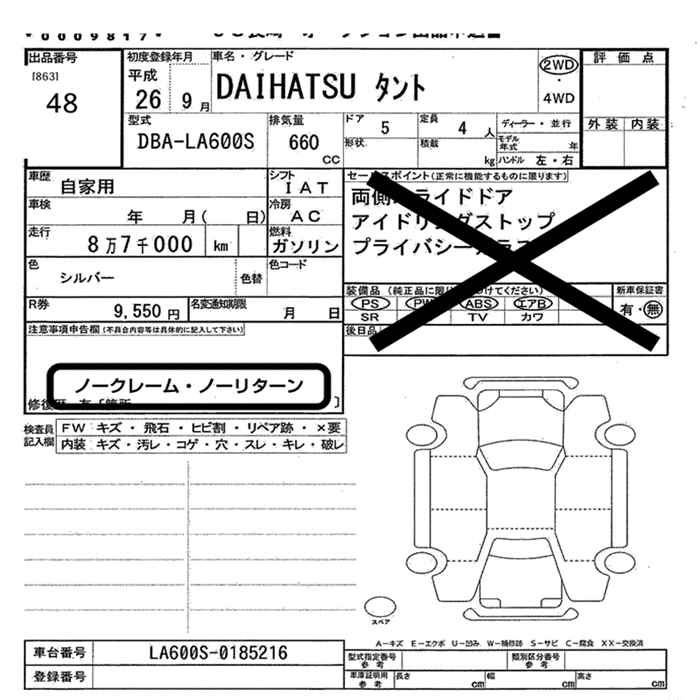 0009817
出品番号
[863]
48
初度登録年月
平成
26 9 月
車名・グレード
DAIHATSU タント
2WD
・
4WD
評価点
外装 内装
型式
DBA-LA600S
排気量
660
CC
ドア 5
定員 4 人
ディーラー・並行
形状
積載 kg
モデル年式 年
ハンドル 左・右
車歴 自家用
シフト IAT
セールスポイント(正常に機能するものに限ります)
両側スライドドア
アイドリングストップ
プライバシーガラス
車検 年 月( 日)
冷房 AC
走行 8万7千000 km
燃料 ガソリン
色 シルバー
色替
色コード
装備品
PS PW ABS エアB
SR TV カワ
新車保証書
有・無
R券 9,550円
名変通知期限 月 日
後日品
注意事項申告欄(不具合内容等は具体的に記入して下さい)
ノークレーム・ノーリターン
検査員記入欄
FW キズ・飛石・ヒビ割・リペア跡・×要
内装 キズ・汚レ・コゲ・穴・スレ・キレ・破レ
スペア
A-キズ E-エクボ U-凹み W-補修跡 S-サビ C-腐食 XX-交換済
車台番号 LA600S-0185216
登録番号
型式指定番号 参考
類別区分番号 参考
車庫証明用 参考
長さ cm
幅 cm
高さ cm